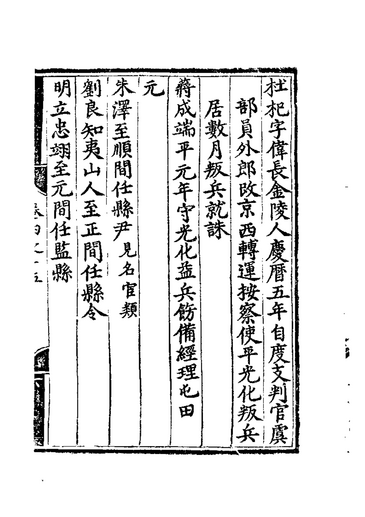 杜杞字偉長金陵人慶曆五年自度支判官虞
部員外郎改京西轉運按察使平光化叛兵
居數月叛兵就誅
蔣成端平元年守光化益兵飭備經理屯田
元
朱澤至順間任縣尹見名宦類
劉良知夷山人至正間任縣令
明立忠翊至元間任監縣